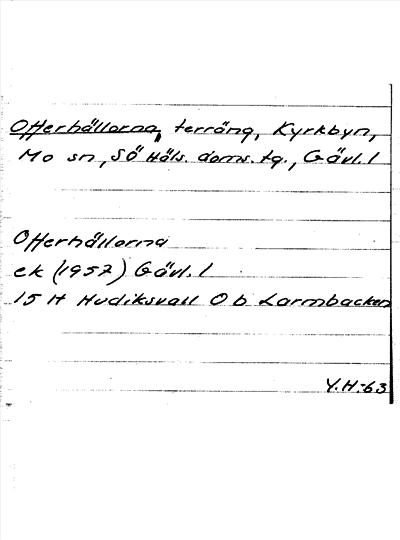 Offerhällorna, terräng, Kyrkbyn,
Mo sn, Sö Häls. doms. tg., Gävl. l
Offerhällorna
ek (1952) Gävl. l
15 H Hudiksvall O b Larmbacken
Y.H.-63